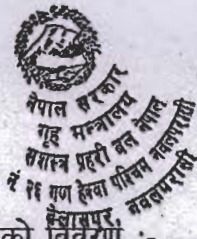 नेपाल सरकार
गृह मन्त्रालय
सशस्त्र प्रहरी बल नेपाल
नं २६ गण हेक्वा पश्चिम नवलपरासी
बेलासपुर, नवलपरासी
को विवरण